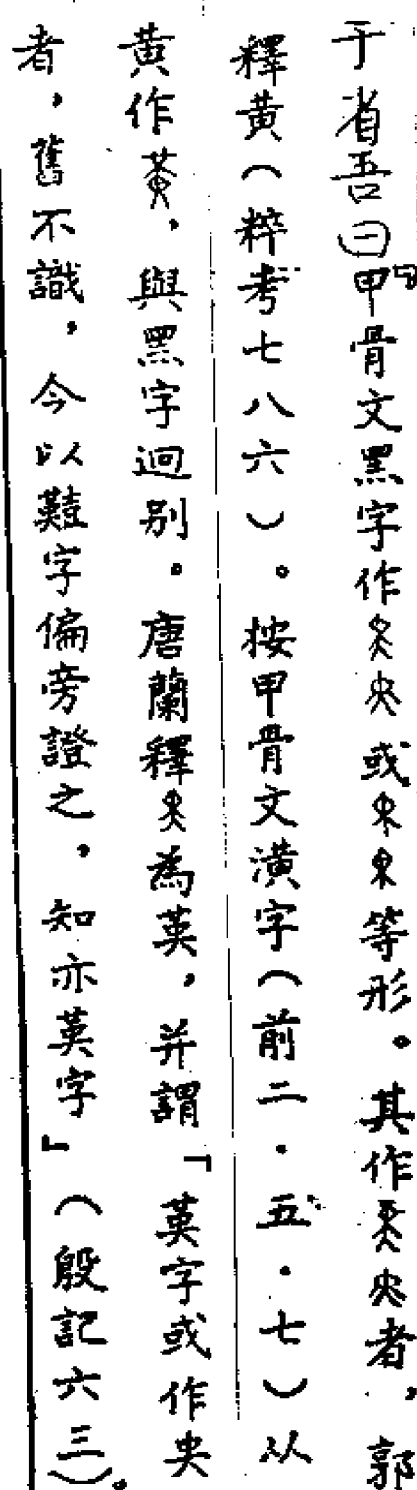 于省吾曰「甲骨文黑字作或等形。其作者，郭
釋黄（粹考七八六）。按甲骨文潢字（前二·五·七）从
黄作，與黑字迥别。唐蘭釋為英，并謂「英字或作
者，舊不識，今以囏字偏旁證之，知亦英字」（殷記六三）。